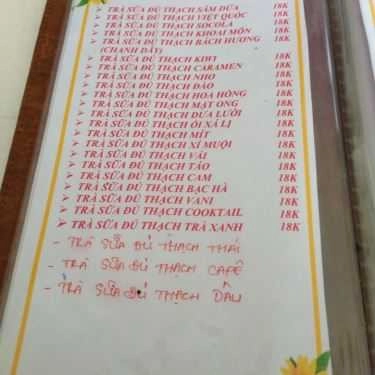 ➢ TRÀ SỮA ĐỦ THẠCH SÂM DỨA 18K
➢ TRÀ SỮA ĐỦ THẠCH VIỆT QUẤC 18K
➢ TRÀ SỮA ĐỦ THẠCH SOCOLA 18K
➢ TRÀ SỮA ĐỦ THẠCH KHOAI MÔN 18K
➢ TRÀ SỮA ĐỦ THẠCH BÁCH HƯƠNG 18K
(CHANH DÂY)
➢ TRÀ SỮA ĐỦ THẠCH KIWI 18K
➢ TRÀ SỮA ĐỦ THẠCH CARAMEN 18K
➢ TRÀ SỮA ĐỦ THẠCH NHO 18K
➢ TRÀ SỮA ĐỦ THẠCH ĐÀO 18K
➢ TRÀ SỮA ĐỦ THẠCH HOA HỒNG 18K
➢ TRÀ SỮA ĐỦ THẠCH MẬT ONG 18K
➢ TRÀ SỮA ĐỦ THẠCH DƯA LƯỚI 18K
➢ TRÀ SỮA ĐỦ THẠCH ỔI XÁ LỊ 18K
➢ TRÀ SỮA ĐỦ THẠCH MÍT 18K
➢ TRÀ SỮA ĐỦ THẠCH XÍ MUỘI 18K
➢ TRÀ SỮA ĐỦ THẠCH VẢI 18K
➢ TRÀ SỮA ĐỦ THẠCH TÁO 18K
➢ TRÀ SỮA ĐỦ THẠCH CAM 18K
➢ TRÀ SỮA ĐỦ THẠCH BẠC HÀ 18K
➢ TRÀ SỮA ĐỦ THẠCH VANI 18K
➢ TRÀ SỮA ĐỦ THẠCH COOKTAIL 18K
➢ TRÀ SỮA ĐỦ THẠCH TRÀ XANH 18K
- TRÀ SỮA ĐỦ THẠCH THÁI
- TRÀ SỮA ĐỦ THẠCH CAFÊ
- TRÀ SỮA ĐỦ THẠCH DÂU